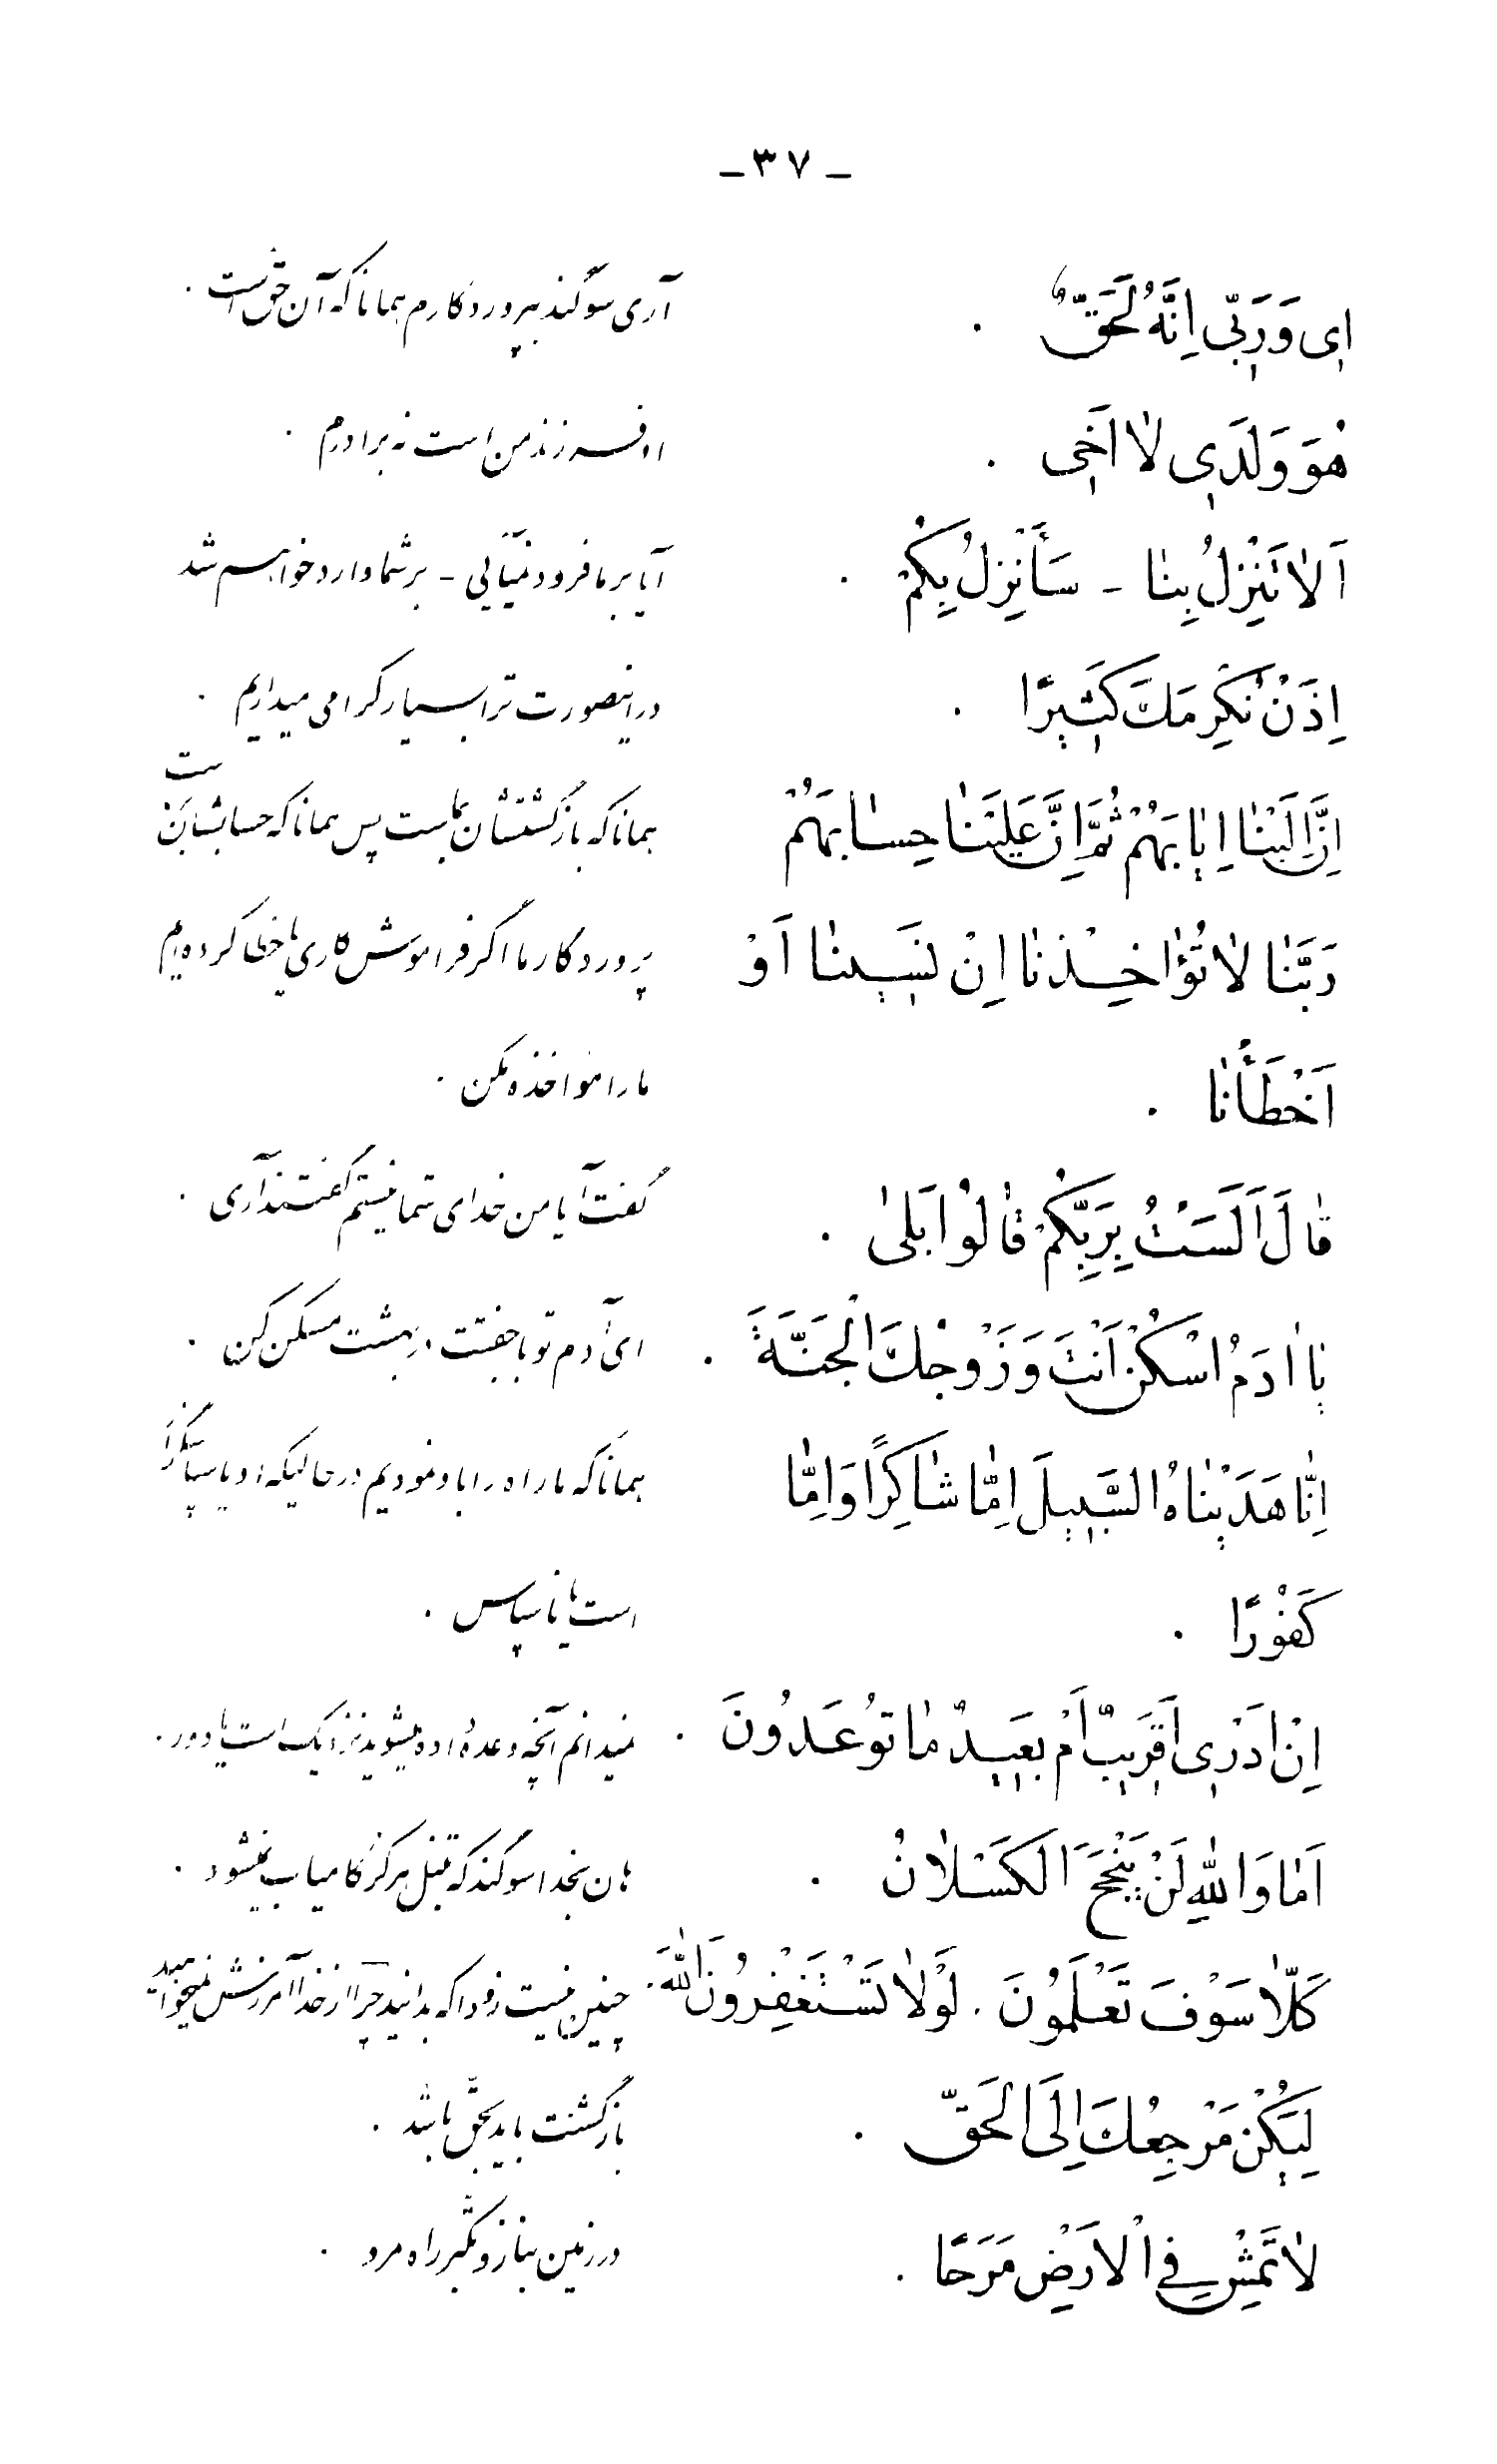 ـ ۳۷ ـ
اِی وَرَبّی اِنَّهُ لَحَقٌّ . آری سوگند بپروردگارم همانا که آن حق است .
هُوَ وَلَدَی لٰا اَخَی . او فرزند من است نه برادرم .
اَلٰا تَنْزِلُ بِنٰا ـ سَأَنْزِلُ بِکُمْ . آیا بر ما فرود نمیآئی ـ بر شما وارد خواهم شد
اِذَنْ نُکْرِمَكَ کَثیرًا . در اینصورت ترا بسیار گرامی میداریم .
اِنَّ اِلَیْنٰا اِیٰابَهُمْ ثُمَّ اِنَّ عَلَیْنٰا حِسٰابَهُمْ همانا که بازگشتشان بماست پس همانا که حسابشان بر ست
رَبَّنٰا لٰا تُؤٰاخِذْنٰا اِنْ نَسینٰا اَوْ پروردگار ما اگر فراموش کاری یا خطا کرده‌ایم
اَخْطَأْنٰا . ما را مؤاخذه مکن .
قٰالَ اَلَسْتُ بِرَبِّکُمْ قٰالُوْا بَلیٰ . گفت آیا من خدای شما نیستم گفتند آری .
یٰا اٰدَمُ اسْکُنْ اَنْتَ وَزَوْجُكَ الْجَنَّةَ . ای آدم تو با جفتت در بهشت مسکن کن .
اِنّٰا هَدَیْنٰاهُ السَّبیلَ اِمّٰا شٰاکِرًا وَاِمّٰا همانا که ما راه را باو نمودیم در حالیکه او یا سپاسگزار
کَفُوْرًا . است یا ناسپاس .
اِنْ اَدْری اَقَریبٌ اَمْ بَعیدٌ مٰا تُوعَدُونَ . نمیدانم آنچه وعده داده میشوید نزدیک است یا دور .
اَمٰا وَاللّٰهِ لَنْ یَنْجَحَ الْکَسْلٰانُ . هان بخدا سوگند که تنبل هرگز کامیاب نمیشود .
کَلّٰا سَوْفَ تَعْلَمُونَ . لَوْلٰا تَسْتَغْفِرُونَ اللّٰهَ . چنین نیست زودا که بدانید چرا از خدا آمرزش نمیخواهید
لِیَکُنْ مَرْجِعُكَ اِلَی الْحَقّ . بازگشتت باید بحق باشد .
لٰا تَمْشِ فِی الْاَرْضِ مَرَحًا . در زمین بناز و تکبر راه مرو .